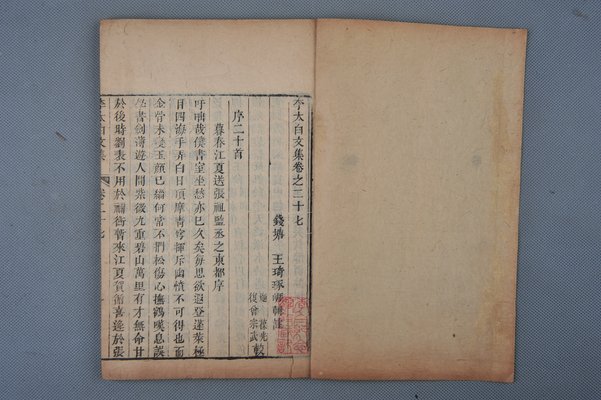 李太白文集卷之二十七
錢塘 王琦琢崖輯註
葆光
復曾宗武 較
序二十首
暮春江夏送張祖監丞之東都序
吁咄哉僕書室坐愁亦已久矣每思欲遐登蓬萊極
目四海手弄白日頂摩青穹揮斥幽憤不可得也而
金骨未變玉顔已緇何常不捫松傷心撫鶴嘆息誤
學書劍薄遊人間紫微九重碧山萬里有才無命甘
於後時劉表不用於禰衡暫來江夏賀循喜逢於張
李太白文集 卷二十七